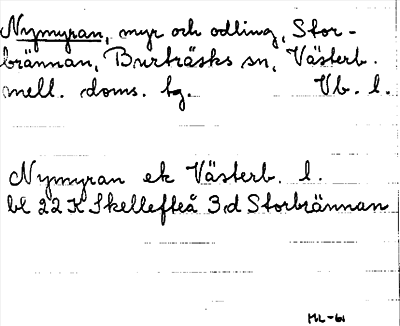 Nymyran, myr och odling, Stor-
brännan, Burträsks sn, Västerb.
mell. doms. tg. Vb. l.
Nymyran ek Västerb. l.
bl 22 K Skellefteå 3d Storbrännan
ML-61